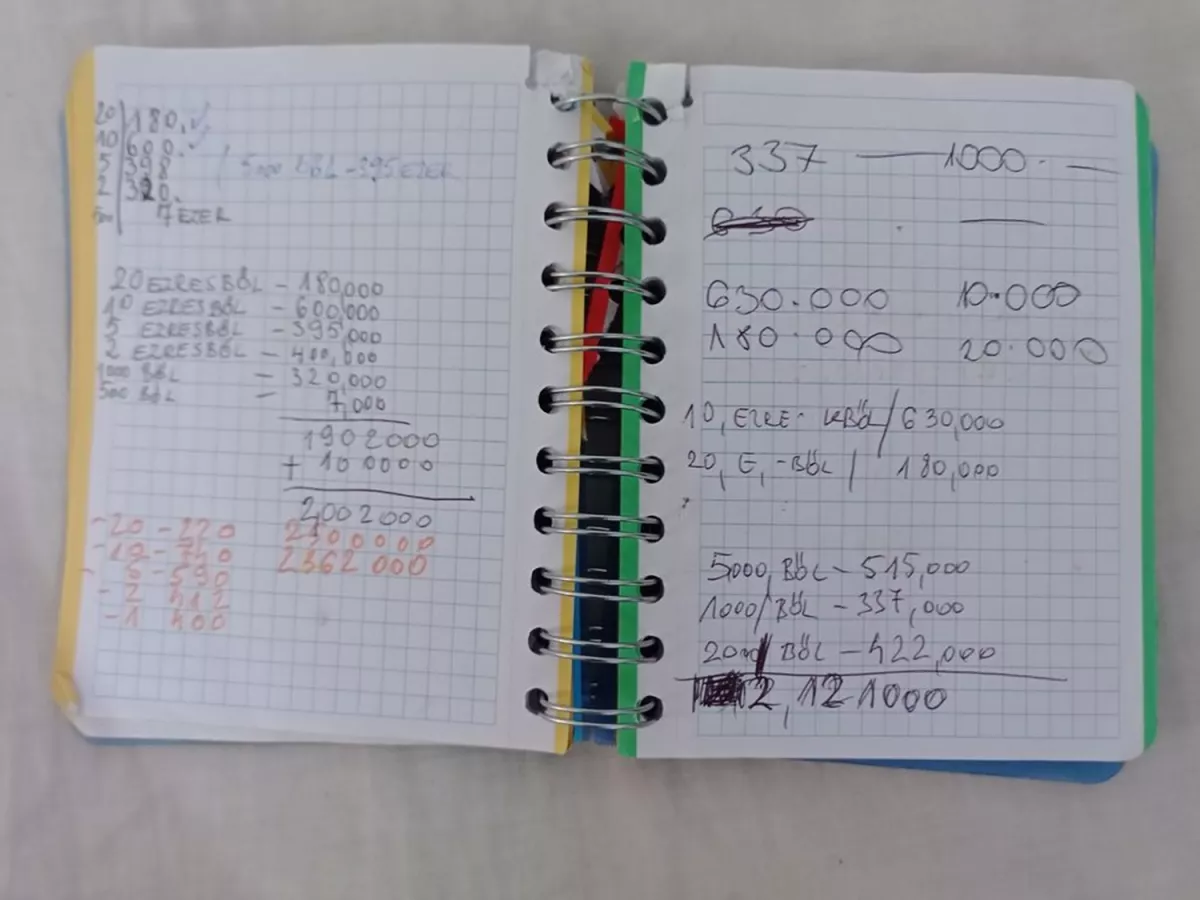 20 180.
10 600.
5 398
2 320.
500 7 EZER
5000 BŐL - 395 EZER
20 EZRESBŐL - 180,000
10 EZRESBŐL - 600,000
5 EZRESBŐL - 395,000
2 EZRESBŐL - 400,000
1000 BŐL - 320,000
500 BŐL - 7,000
1902000
+ 100000
2002000
-20 - 220 2300000
-10 - 740 2362 000
- 5 - 590
- 2 412
- 1 400
337 — 1000. —
630.000 10.000
180.000 20.000
10, EZRE- KBŐL / 630,000
20, E, -BŐL / 180,000
5000, BŐL - 515,000
1000/BŐL - 337,000
2000/ BŐL - 422,000
2,121000